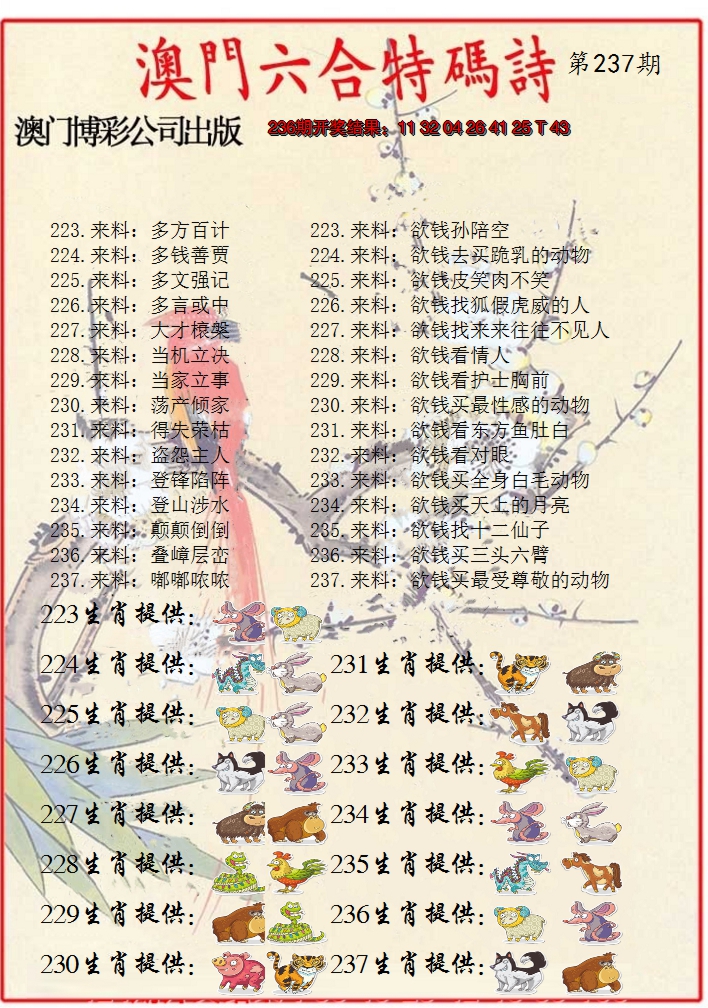 澳門六合特碼詩 第237期
澳门博彩公司出版 236期开奖结果：11 32 04 26 41 25 T 43
223.来料：多方百计 223.来料：欲钱孙陪空
224.来料：多钱善贾 224.来料：欲钱去买跪乳的动物
225.来料：多文强记 225.来料：欲钱皮笑肉不笑
226.来料：多言或中 226.来料：欲钱找狐假虎威的人
227.来料：大才榱槃 227.来料：欲钱找来来往往不见人
228.来料：当机立决 228.来料：欲钱看情人
229.来料：当家立事 229.来料：欲钱看护士胸前
230.来料：荡产倾家 230.来料：欲钱买最性感的动物
231.来料：得失荣枯 231.来料：欲钱看东方鱼肚白
232.来料：盗怨主人 232.来料：欲钱看对眼
233.来料：登锋陷阵 233.来料：欲钱买全身白毛动物
234.来料：登山涉水 234.来料：欲钱买天上的月亮
235.来料：颠颠倒倒 235.来料：欲钱找十二仙子
236.来料：叠嶂层峦 236.来料：欲钱买三头六臂
237.来料：嘟嘟哝哝 237.来料：欲钱买最受尊敬的动物
223生肖提供：
224生肖提供： 231生肖提供：
225生肖提供： 232生肖提供：
226生肖提供： 233生肖提供：
227生肖提供： 234生肖提供：
228生肖提供： 235生肖提供：
229生肖提供： 236生肖提供：
230生肖提供： 237生肖提供：